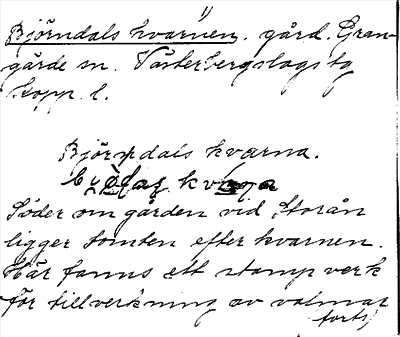 Björndals kvarnen. gård. Gran-
gärde sn. Västerbergslags tg
Kopp. l.
Björndals kvarna.
Söder om gården vid Storån
ligger tomten efter kvarnen.
Här fanns ett stampverk
för tillverkning av valmar
forts)